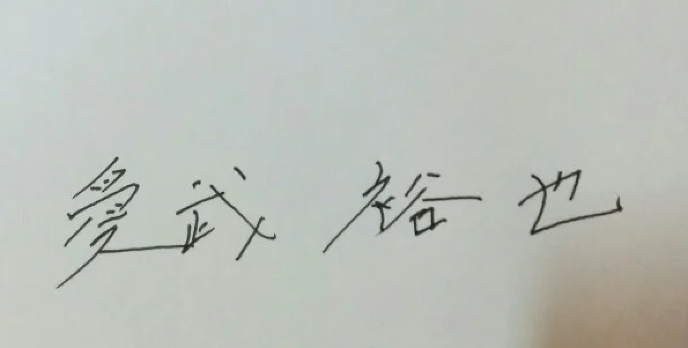 愛武 裕也